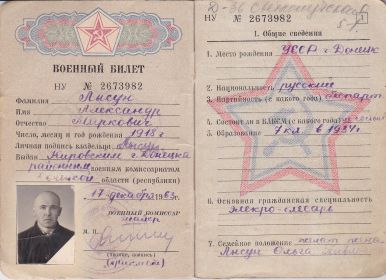 ВОЕННЫЙ БИЛЕТ
НУ № 2673982
Фамилия Янсун
Имя Александр
Отчество Миркович
Число, месяц и год рождения 1918 г
Личная подпись владельца
Выдан Кировским г. Донецка
районным военным комиссариатом
области (республики)
17 декабря 1963 г.
ВОЕННЫЙ КОМИССАР
майор
М. П.
(звание, подпись)
Д-36
НУ № 2673982
I. Общие сведения
1. Место рождения УССР г. Донецк
2. Национальность русский
3. Партийность (с какого года) беспарт
4. Состоит ли в ВЛКСМ (с какого года)
5. Образование 7 кл. в 1934 г.
6. Основная гражданская специальность
электро-слесарь
7. Семейное положение женат жена
Янсун Ольга